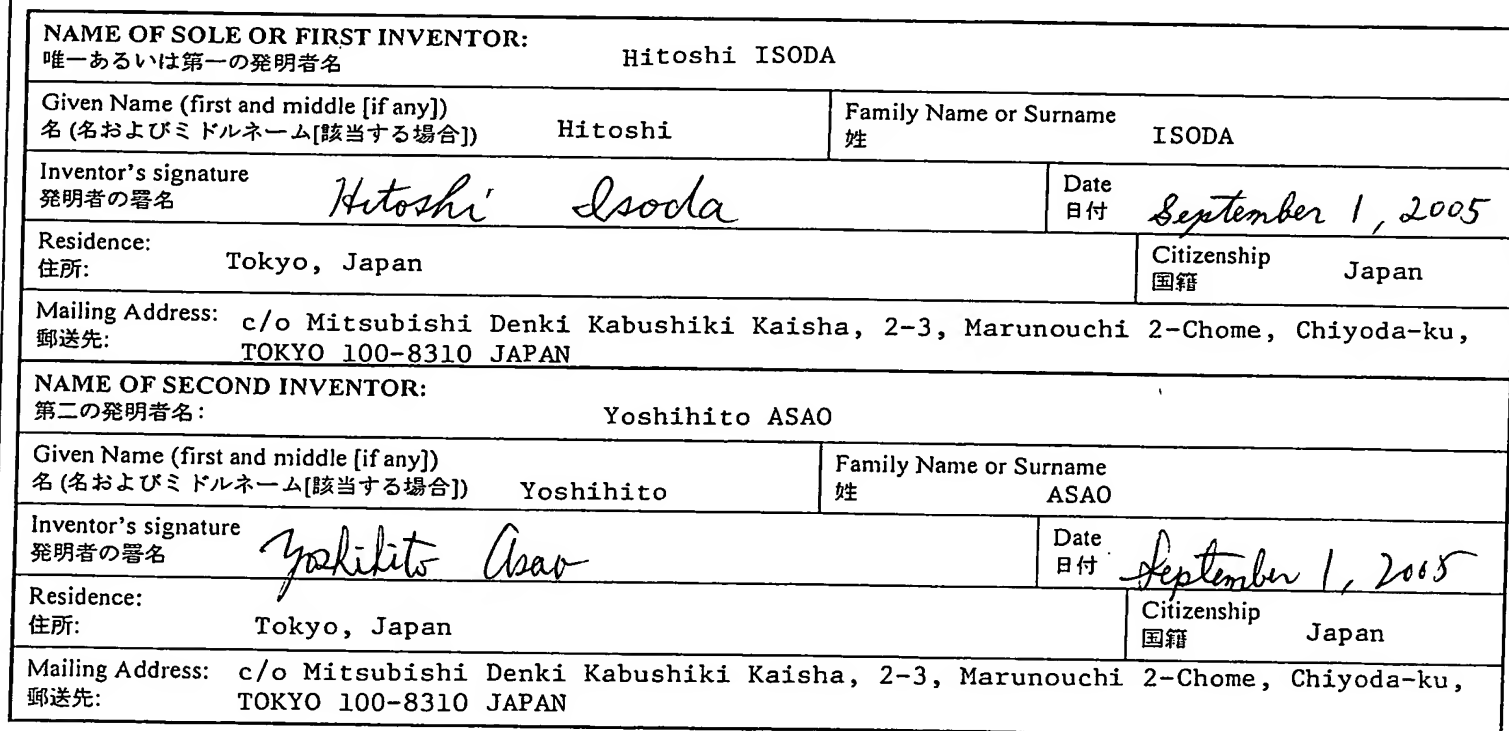 NAME OF SOLE OR FIRST INVENTOR:
唯一あるいは第一の発明者名 Hitoshi ISODA
Given Name (first and middle [if any])
名 (名およびミドルネーム[該当する場合]) Hitoshi
Family Name or Surname
姓 ISODA
Inventor's signature
発明者の署名 Hitoshi Isoda
Date
日付 September 1, 2005
Residence:
住所: Tokyo, Japan
Citizenship
国籍 Japan
Mailing Address: c/o Mitsubishi Denki Kabushiki Kaisha, 2-3, Marunouchi 2-Chome, Chiyoda-ku,
郵送先: TOKYO 100-8310 JAPAN
NAME OF SECOND INVENTOR:
第二の発明者名: Yoshihito ASAO
Given Name (first and middle [if any])
名 (名およびミドルネーム[該当する場合]) Yoshihito
Family Name or Surname
姓 ASAO
Inventor's signature
発明者の署名 Yoshihito Asao
Date
日付 September 1, 2005
Residence:
住所: Tokyo, Japan
Citizenship
国籍 Japan
Mailing Address: c/o Mitsubishi Denki Kabushiki Kaisha, 2-3, Marunouchi 2-Chome, Chiyoda-ku,
郵送先: TOKYO 100-8310 JAPAN